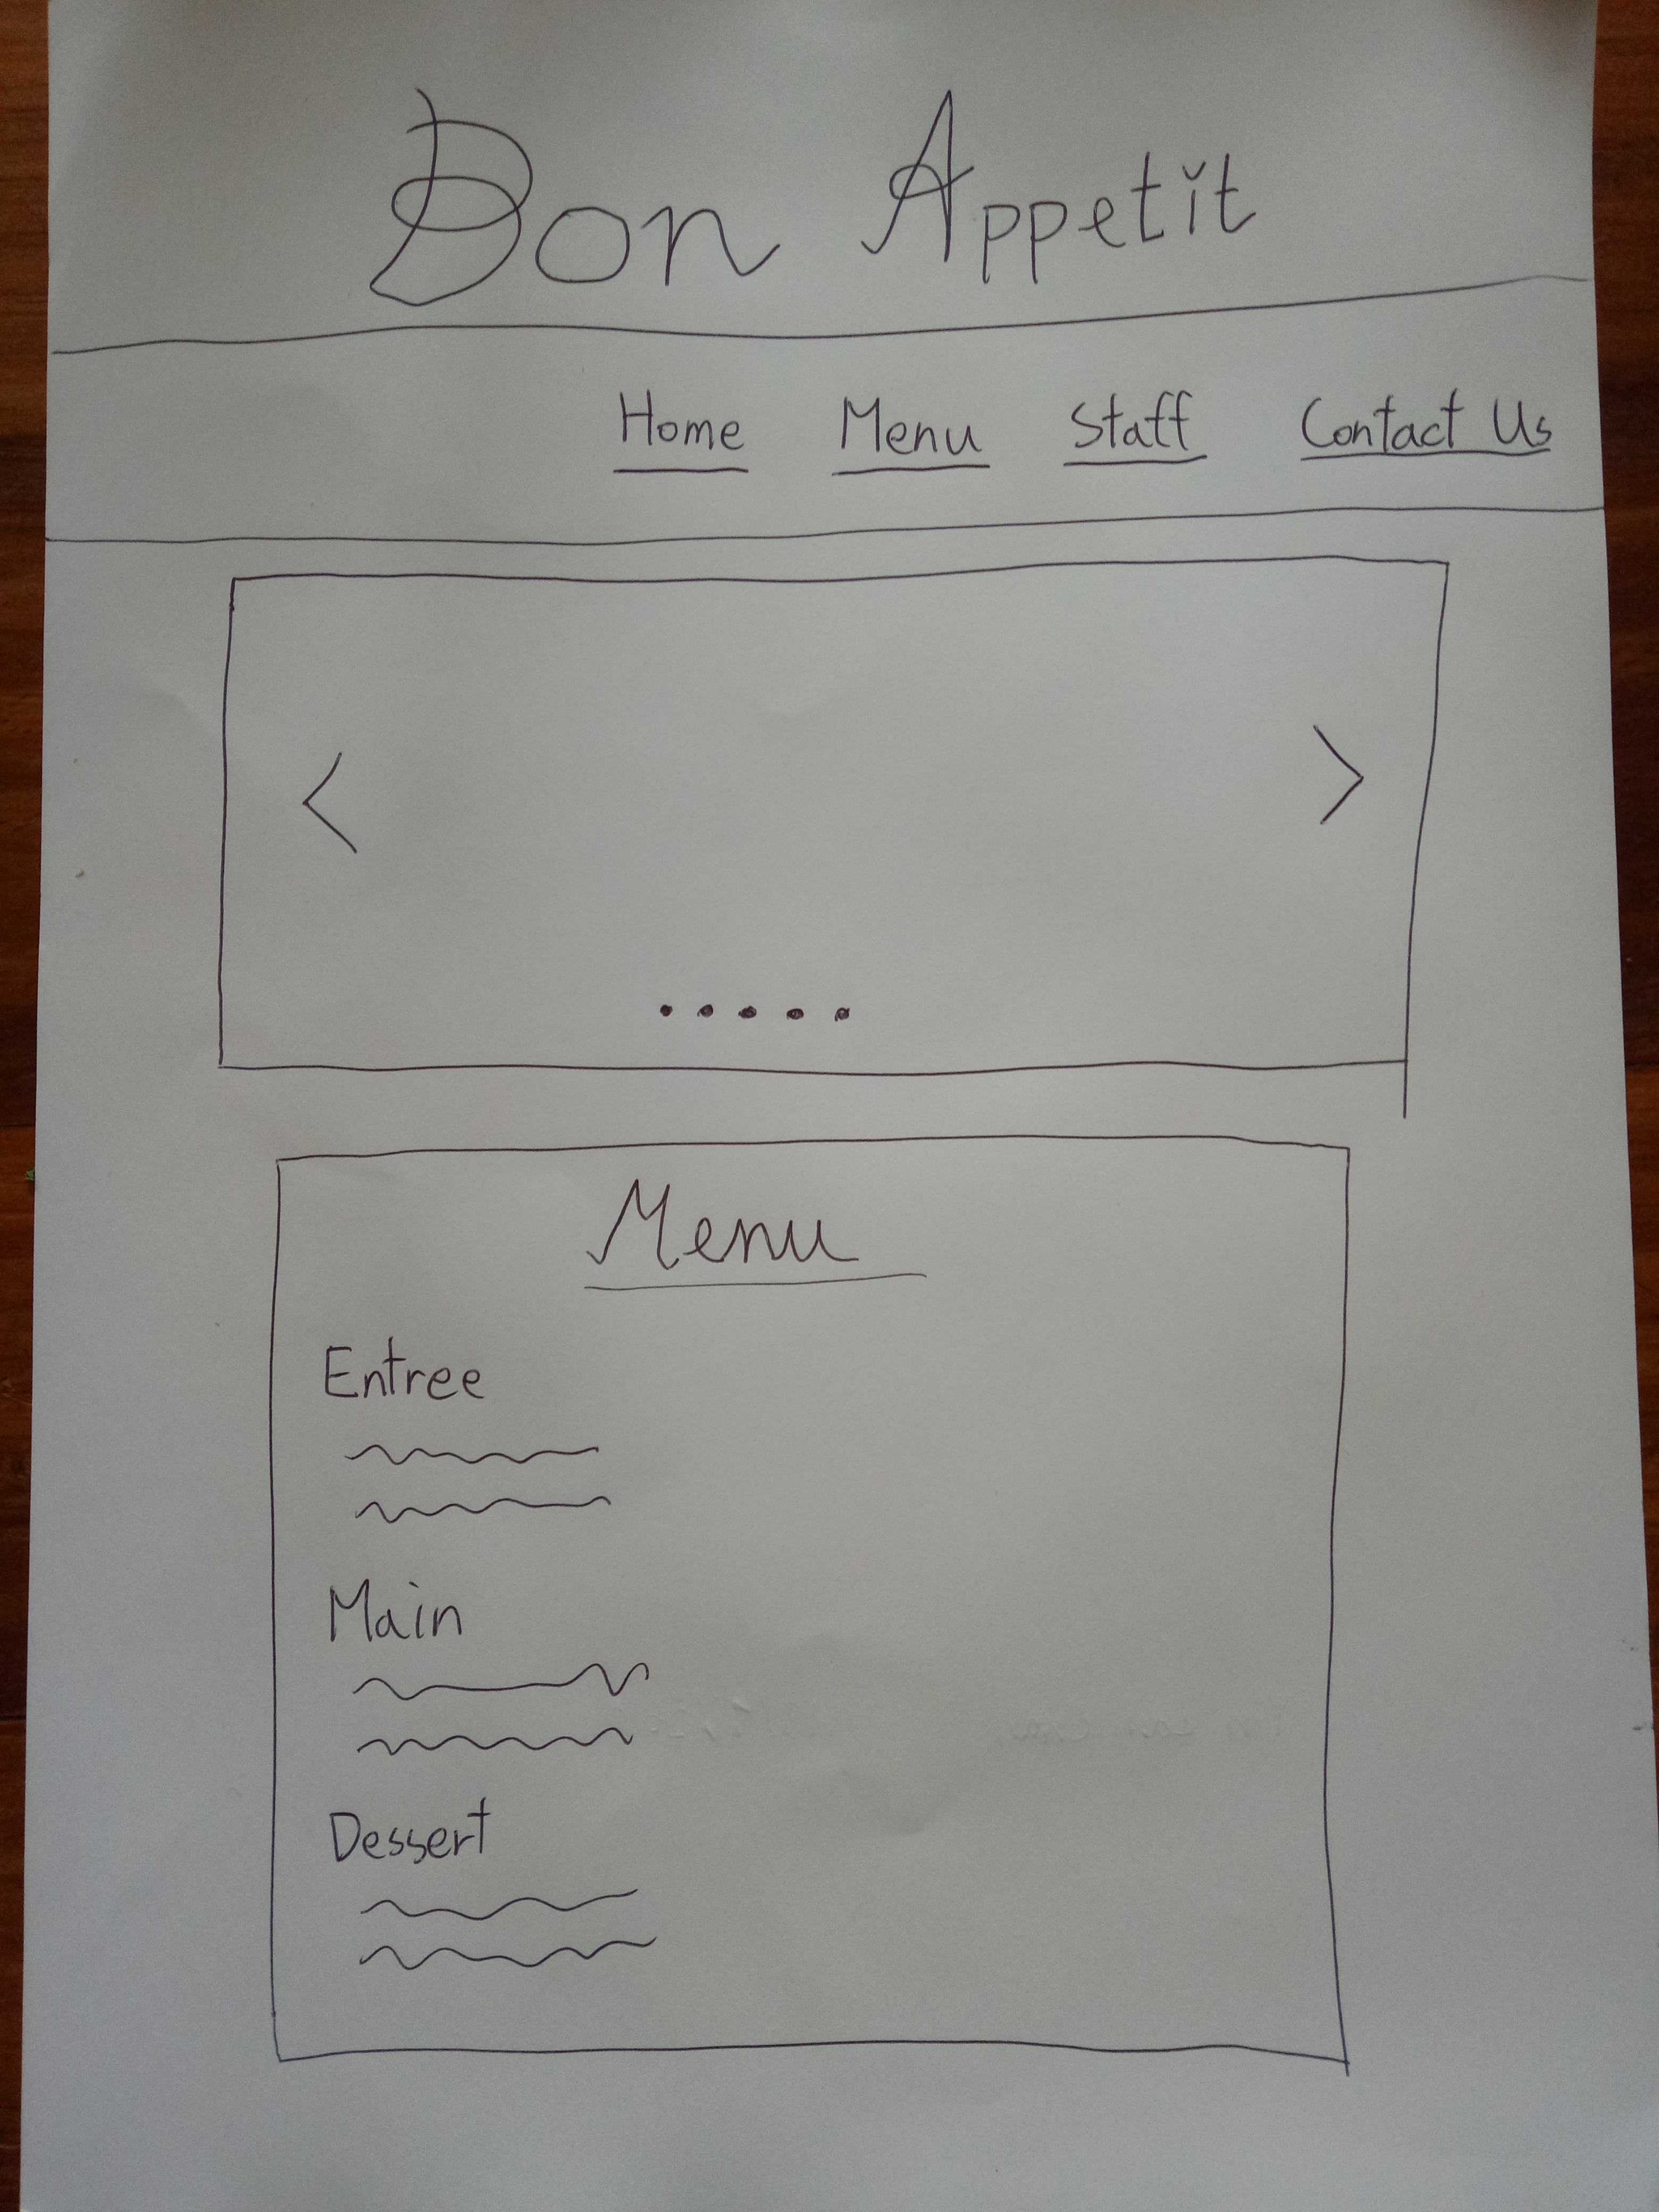 Bon Appetit
Home Menu Staff Contact Us
< >
Menu
Entree
Main
Dessert